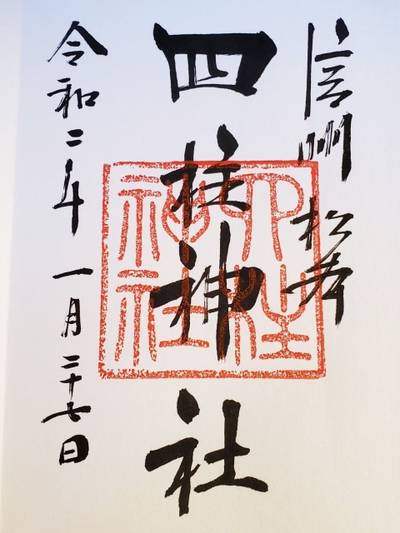 信州松本
四柱神社
令和二年一月二十七日
四柱神社